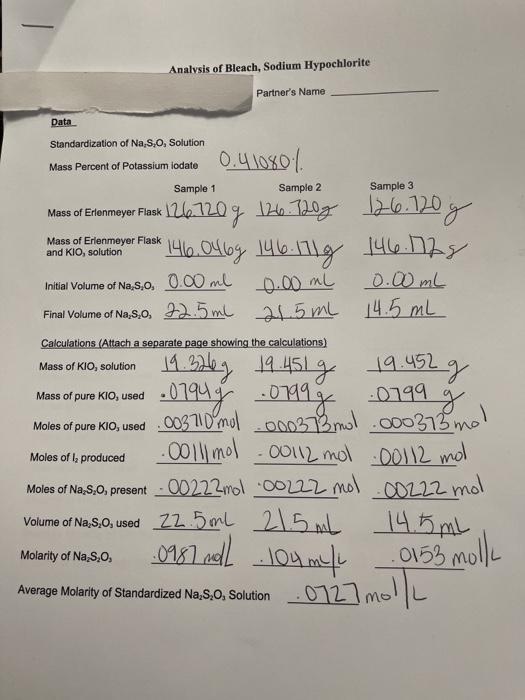 Analysis of Bleach, Sodium Hypochlorite
Partner's Name
Data
Standardization of Na₂S₂O₃ Solution
Mass Percent of Potassium iodate 0.41080%
Sample 1 Sample 2 Sample 3
Mass of Erlenmeyer Flask 126.720g 126.720g 126.720g
Mass of Erlenmeyer Flask
and KIO₃ solution 146.046g 146.171g 146.172g
Initial Volume of Na₂S₂O₃ 0.00 mL 0.00 mL 0.00 mL
Final Volume of Na₂S₂O₃ 22.5mL 21.5mL 14.5 mL
Calculations (Attach a separate page showing the calculations)
Mass of KIO₃ solution 19.326g 19.451g 19.452 g
Mass of pure KIO₃ used .0794g .0799g .0799 g
Moles of pure KIO₃ used .003710mol .000373mol .000373mol
Moles of I₂ produced .00111mol .00112 mol .00112 mol
Moles of Na₂S₂O₃ present .00222mol .00222 mol .00222 mol
Volume of Na₂S₂O₃ used 22.5mL 21.5mL 14.5mL
Molarity of Na₂S₂O₃ .0987 mol/L .104 mol/L .0153 mol/L
Average Molarity of Standardized Na₂S₂O₃ Solution .0727mol/L